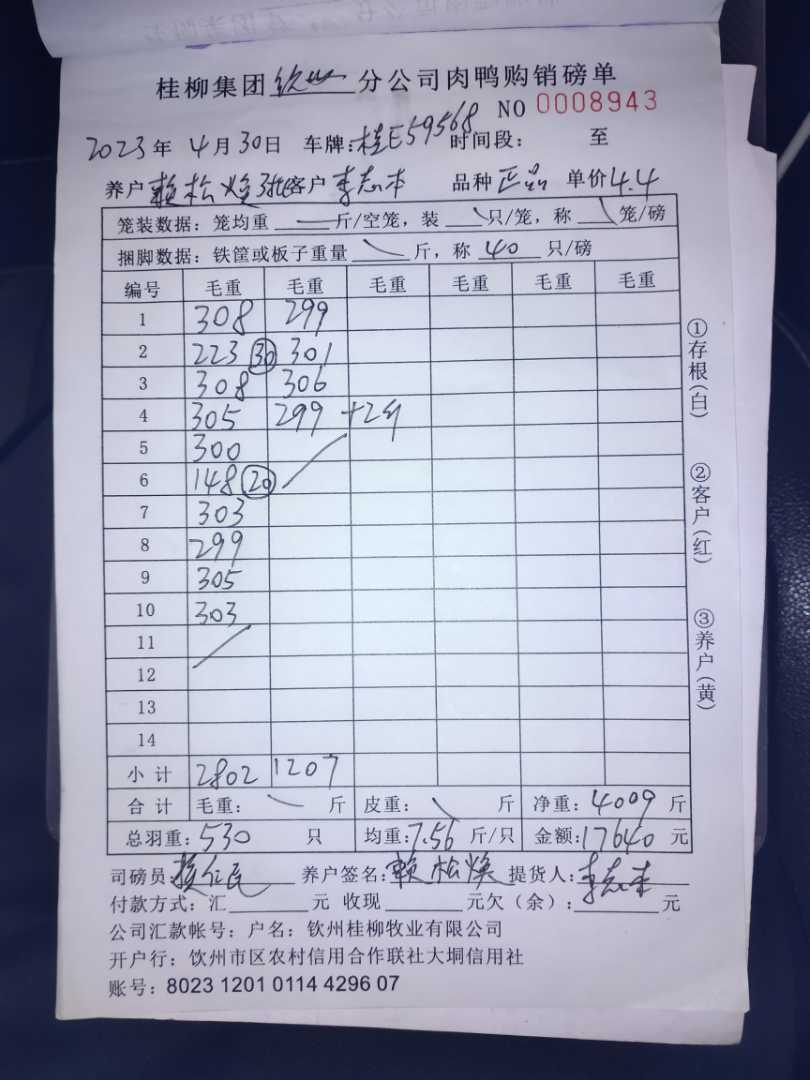 桂柳集团钦州分公司肉鸭购销磅单
NO 0008943
2023年 4月30日 车牌:桂E59568 时间段: 至
养户 赖松焕 客户 李志本 品种 正品 单价4.4
笼装数据:笼均重 斤/空笼,装 只/笼,称 笼/磅
捆脚数据:铁筐或板子重量 斤,称 40 只/磅
编号 毛重 毛重 毛重 毛重 毛重 毛重
1 308 299
2 223 30 301
3 308 306
4 305 299 +2斤
5 300
6 148 20
7 303
8 299
9 305
10 303
11
12
13
14
小计 2802 1207
合计 毛重: 斤 皮重: 斤 净重:4009斤
总羽重:530 只 均重:7.56 斤/只 金额:17640元
司磅员: 养户签名:赖松焕 提货人:李志本
付款方式:汇 元 收现 元欠(余): 元
公司汇款帐号:户名:钦州桂柳牧业有限公司
开户行:饮州市区农村信用合作联社大垌信用社
账号:8023 1201 0114 4296 07
①存根(白)
②客户(红)
③养户(黄)